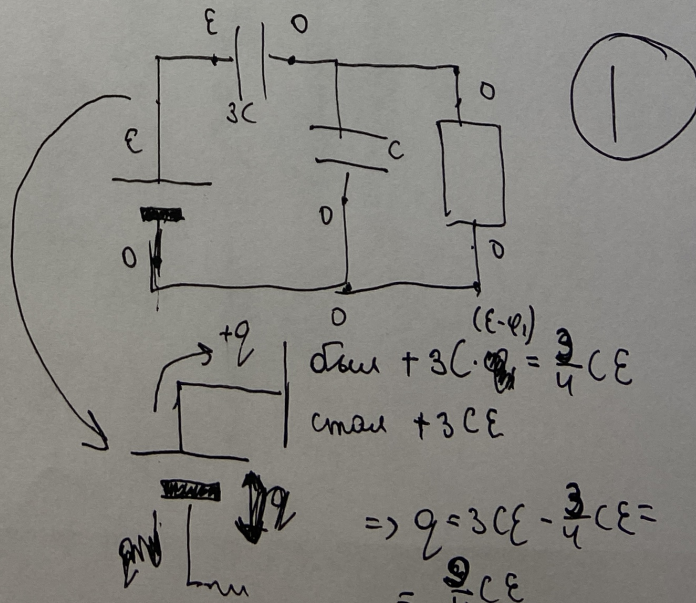 ε 0
3C
ε
C
0
0
0
0
0
1
+q
(ε-φ₁)
был + 3C· = 3/4 Cε
стал + 3Cε
q
=> q = 3Cε - 3/4 Cε =
= 9/4 Cε